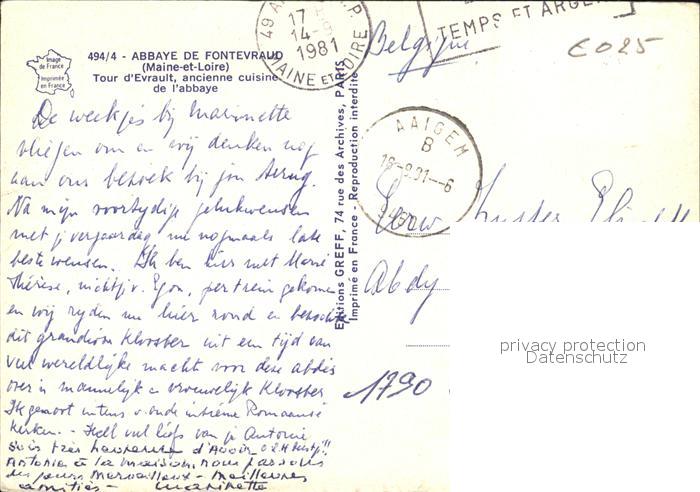 49
17
14-
1981
MAINE ET LOIRE
TEMPS ET
Belgique
€025
Image
de France
Imprimée
en France
494/4 - ABBAYE DE FONTEVRAUD
(Maine-et-Loire)
Tour d'Evrault, ancienne cuisine
de l'abbaye
De weekjes bij Marinette
vliegen om en wij denken nog
aan ons bezoek bij jou terug.
Na mijn voortijdige gelukwensen
met je verjaardag nu nogmaals
beste wensen. Ik ben hier met Marie
Thérèse, v. Egon, per trein gekomen
en wij rijden nu hier rond en
dit grandioze klooster uit een tijd van
veel wereldlijke macht voor deze abdis
over 'n mannelijk en vrouwelijk klooster.
Ik geniet intens v. oude intieme Romaanse
kerken. - Heel veel liefs van je Antonie
suis très heureuse d'avoir
Antonie à la maison, nous passons
des jours merveilleux - Meilleures
amitiés - Marinette
Editions GREFF, 74 rue des Archives, PARIS
Imprimé en France - Reproduction interdite
AAIGEM
B
-6
Zuster
Abdij
1790
privacy protection
Datenschutz